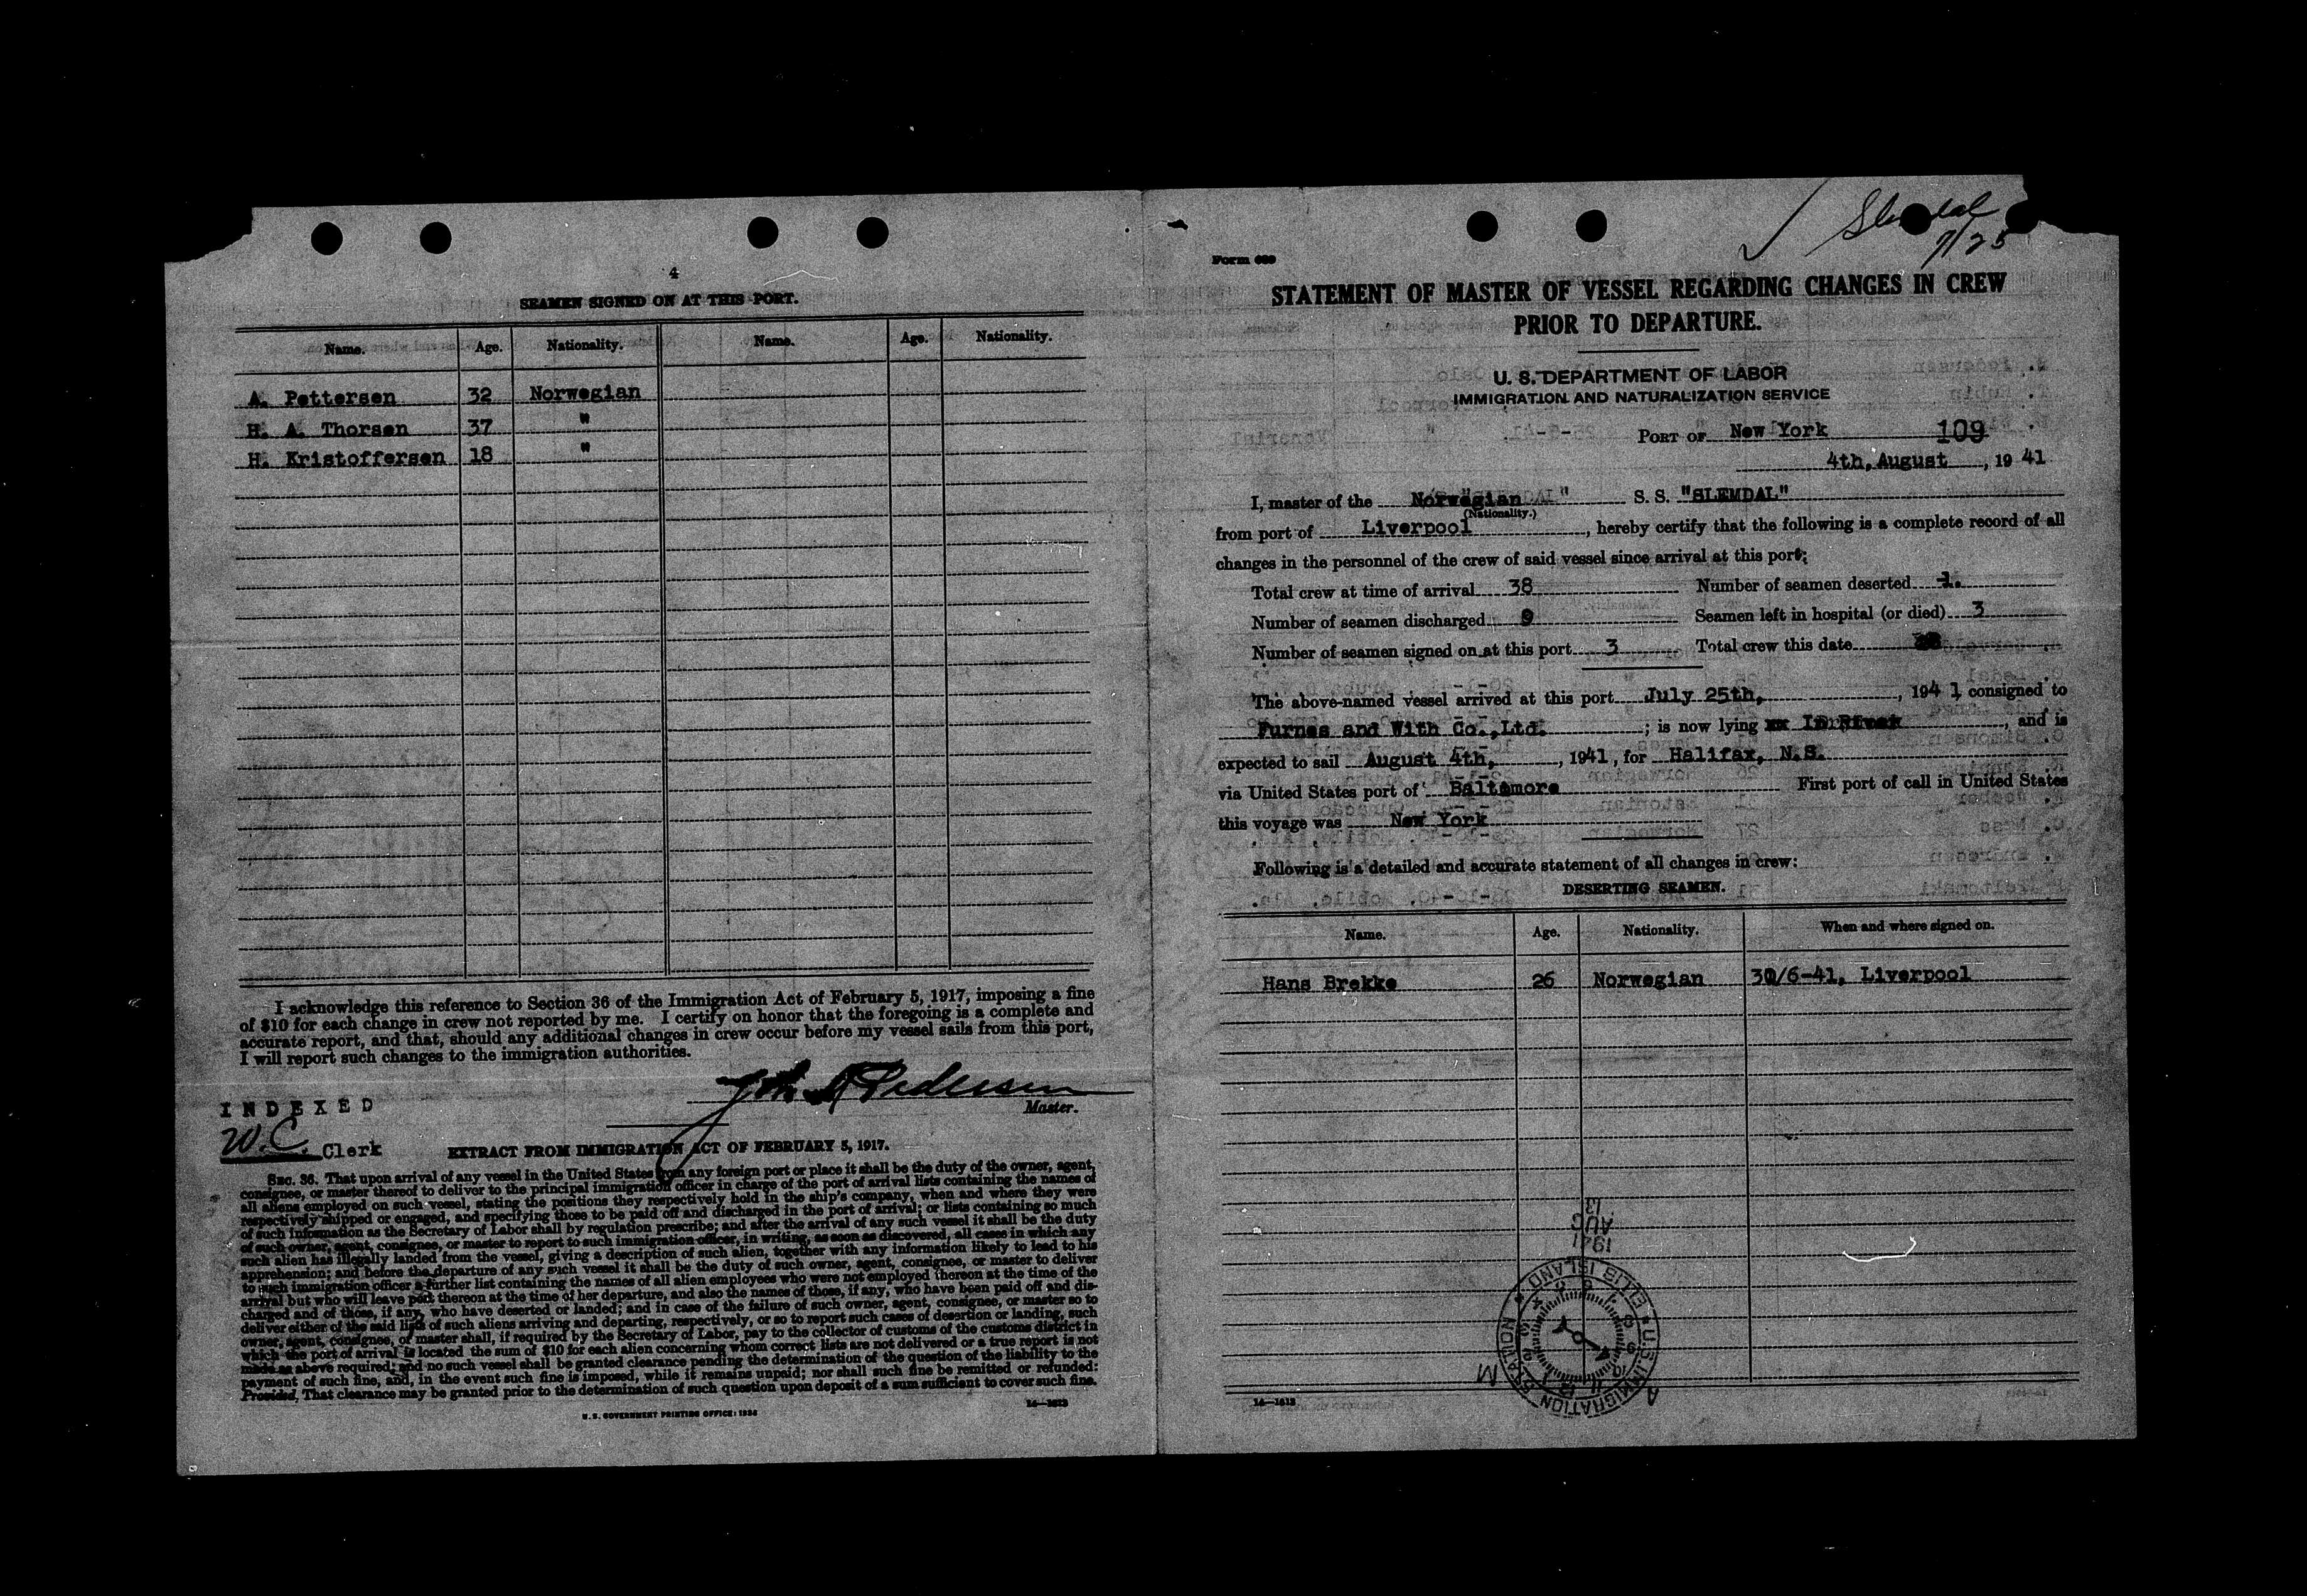 4
SEAMEN SIGNED ON AT THIS PORT.
Name. Age. Nationality. Name. Age. Nationality.
A. Pettersen 32 Norwegian
H. A. Thorsen 37 "
H. Kristoffersen 18 "
I acknowledge this reference to Section 36 of the Immigration Act of February 5, 1917, imposing a fine
of $10 for each change in crew not reported by me. I certify on honor that the foregoing is a complete and
accurate report, and that, should any additional changes in crew occur before my vessel sails from this port,
I will report such changes to the immigration authorities.
Pedersen
Master.
INDEXED
W.C. Clerk
EXTRACT FROM IMMIGRATION ACT OF FEBRUARY 5, 1917.
SEC. 36. That upon arrival of any vessel in the United States from any foreign port or place it shall be the duty of the owner, agent,
consignee, or master thereof to deliver to the principal immigration officer in charge of the port of arrival lists containing the names of
all aliens employed on such vessel, stating the positions they respectively hold in the ship's company, when and where they were
respectively shipped or engaged, and specifying those to be paid off and discharged in the port of arrival; or lists containing so much
of such information as the Secretary of Labor shall by regulation prescribe; and after the arrival of any such vessel it shall be the duty
of such owner, agent, consignee, or master to report to such immigration officer, in writing, as soon as discovered, all cases in which any
such alien has illegally landed from the vessel, giving a description of such alien, together with any information likely to lead to his
apprehension; and before the departure of any such vessel it shall be the duty of such owner, agent, consignee, or master to deliver
to such immigration officer a further list containing the names of all alien employees who were not employed thereon at the time of the
arrival but who will leave port thereon at the time of her departure, and also the names of those, if any, who have been paid off and dis-
charged and of those, if any, who have deserted or landed; and in case of the failure of such owner, agent, consignee, or master so to
deliver either of the said lists of such aliens arriving and departing, respectively, or so to report such cases of desertion or landing, such
owner, agent, consignee, or master shall, if required by the Secretary of Labor, pay to the collector of customs of the customs district in
which the port of arrival is located the sum of $10 for each alien concerning whom correct lists are not delivered or a true report is not
made as above required; and no such vessel shall be granted clearance pending the determination of the question of the liability to the
payment of such fine, and, in the event such fine is imposed, while it remains unpaid; nor shall such fine be remitted or refunded:
Provided, That clearance may be granted prior to the determination of such question upon deposit of a sum sufficient to cover such fine.
U. S. GOVERNMENT PRINTING OFFICE: 1934 14—1613
7/25
Form 689
STATEMENT OF MASTER OF VESSEL REGARDING CHANGES IN CREW
PRIOR TO DEPARTURE.
U. S. DEPARTMENT OF LABOR
IMMIGRATION AND NATURALIZATION SERVICE
PORT OF New York 109
4th, August, 1941
I, master of the Norwegian S. S. "SLEMDAL"
(Nationality.)
from port of Liverpool, hereby certify that the following is a complete record of all
changes in the personnel of the crew of said vessel since arrival at this port:
Total crew at time of arrival 38 Number of seamen deserted 1.
Number of seamen discharged 9 Seamen left in hospital (or died) 3
Number of seamen signed on at this port 3 Total crew this date
The above-named vessel arrived at this port July 25th, , 1941 consigned to
Furnes and With Co.,Ltd. ; is now lying , and is
expected to sail August 4th, , 1941, for Halifax, N.S.
via United States port of Baltimore First port of call in United States
this voyage was New York
Following is a detailed and accurate statement of all changes in crew:
DESERTING SEAMEN.
Name. Age. Nationality. When and where signed on.
Hans Brekke 26 Norwegian 30/6-41, Liverpool
1941
AUG
13
U.S. IMMIGRATION STATION ELLIS ISLAND
A M
14—1613